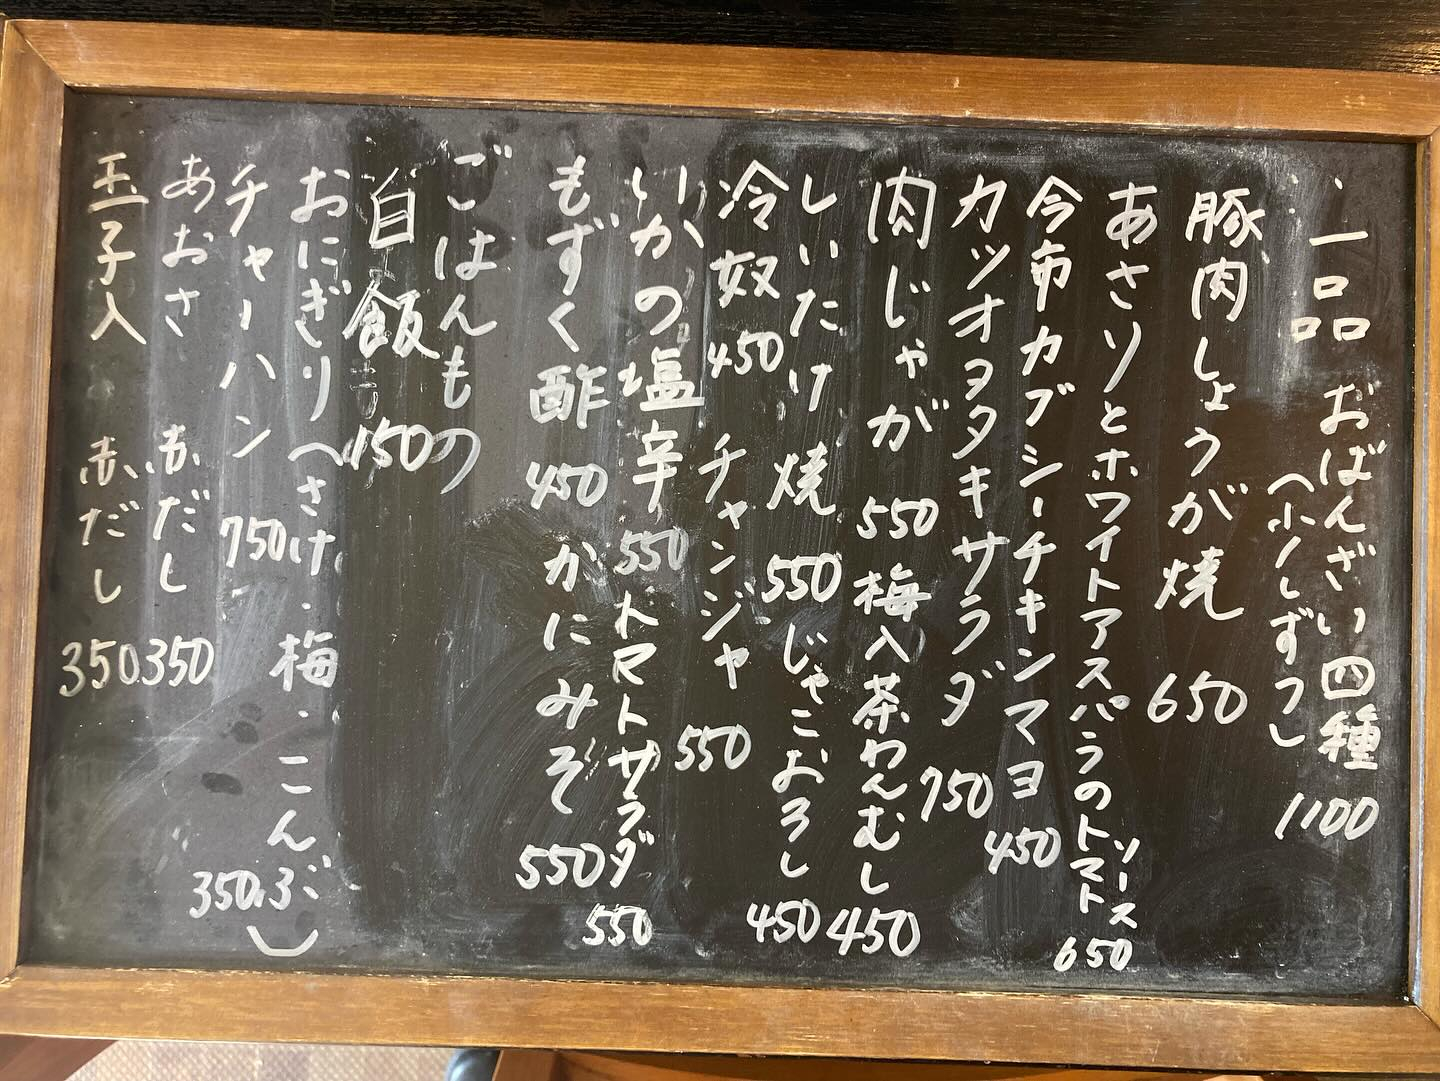 一品 おばんざい四種 1100
(少しずつ)
豚肉しょうが焼 650
あさりとホワイトアスパラのトマトソース 650
今市カブシーチキンマヨ 450
カツオヲタキサラダ 750
肉じゃが 550 梅入茶わんむし 450
しいたけ焼 550 じゃこおろし 450
冷奴 450 チャンジャ 550
いかの塩辛 550 トマトサラダ 550
もずく酢 450 かにみそ 550
ごはんもの
白飯 150
おにぎり(さけ・梅・こんぶ) 350
チャーハン 750
あおさ 赤だし 350
玉子入 赤だし 350